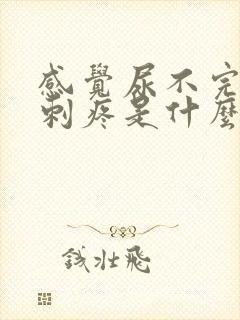 感覺尿不完
刺疼是什麼
錢壯飛